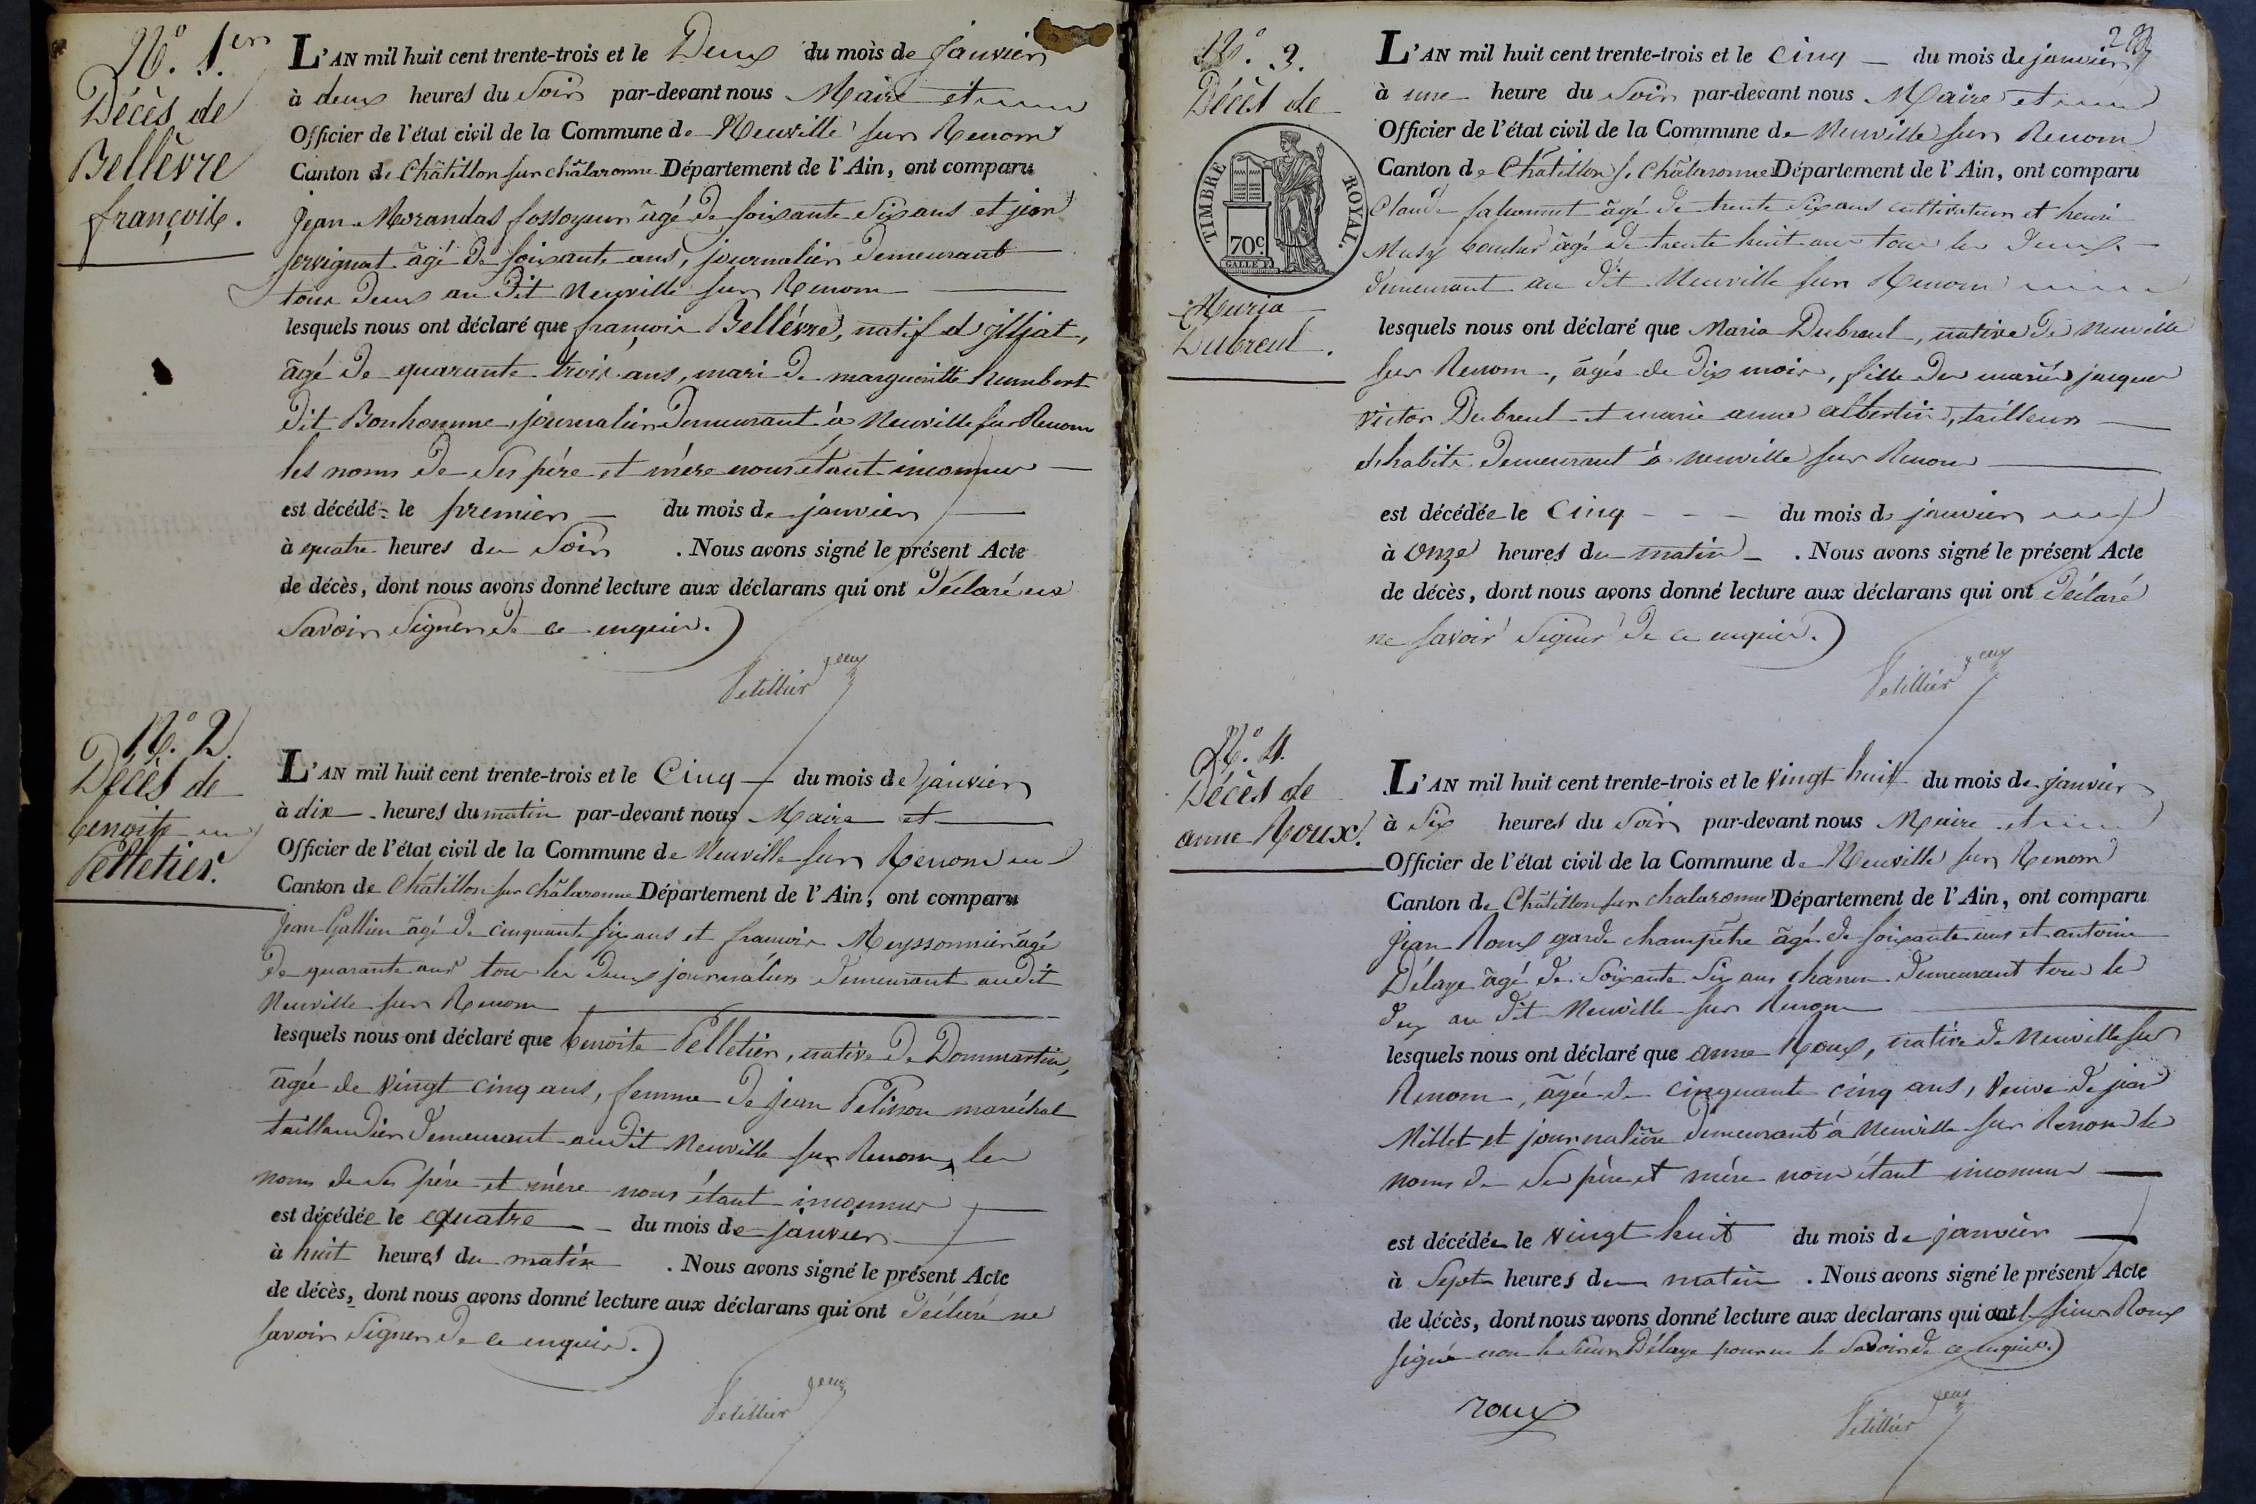 N.o 1.er
Décès de
Bellèvre
françois.
L'AN mil huit cent trente-trois et le Deux du mois de janvier
à deux heures du Soir par-devant nous Maire et
Officier de l'état civil de la Commune de Neuville sur Renom
Canton de Châtillon sur châlaronne Département de l'Ain, ont comparu
Jean Morandas fossoyeur âgé de soixante Six ans et jean
servignat âgé de soixante ans, journalier demeurant
tous deux au dit Neuville sur Renom
lesquels nous ont déclaré que françois Bellèvre, natif d
âgé de quarante trois ans, mari de margueritte humbert
dit Bonhomme, journalier demeurant à Neuville sur Renom
les noms de Ses père et mère nous étant inconnus
est décédé le premier du mois de janvier
à quatre heures du Soir . Nous avons signé le présent Acte
de décès, dont nous avons donné lecture aux déclarans qui ont déclaré ne
Savoir Signer de ce enquis.
N.o 2.
Décès de
benoite
Pelletier.
L'AN mil huit cent trente-trois et le Cinq du mois de janvier
à dix heures du matin par-devant nous Maire et
Officier de l'état civil de la Commune de Neuville sur Renom
Canton de Châtillon sur châlaronne Département de l'Ain, ont comparu
Jean Gallien âgé de cinquante six ans et francois Meyssonnier âgé
de quarante ans tous les deux journaliers demeurant audit
Neuville sur Renom
lesquels nous ont déclaré que benoite Pelletier, native de Dommartin,
âgée de Vingt cinq ans, femme de jean maréchal
taillandier demeurant audit Neuville sur Renom, les
noms de Ses père et mère nous étant inconnus
est décédée le quatre du mois de janvier
à huit heures du matin . Nous avons signé le présent Acte
de décès, dont nous avons donné lecture aux déclarans qui ont déclaré ne
savoir Signer de ce enquis.
N.o 3.
Décès de
TIMBRE ROYAL.
70c
Maria
Dubreul.
L'AN mil huit cent trente-trois et le cinq du mois de janvier
à une heure du Soir par-devant nous Maire et
Officier de l'état civil de la Commune de Neuville sur Renom
Canton de Châtillon s. Châlaronne Département de l'Ain, ont comparu
Claude âgé de trente Six ans cultivateur et henri
Musy âgé de trente huit ans tous les deux
demeurant au dit Neuville sur Renom
lesquels nous ont déclaré que Maria Dubreul, native de Neuville
sur Renom, âgée de dix mois, fille des mariés jacques
victor Dubreul et marie anne albertin, tailleur
d'habits demeurant à neuville sur Renom
est décédée le Cinq du mois de janvier
à Onze heures du matin . Nous avons signé le présent Acte
de décès, dont nous avons donné lecture aux déclarans qui ont déclaré
ne savoir Signer de ce enquis.
N.o 4.
Décès de
anne Roux.
L'AN mil huit cent trente-trois et le vingt huit du mois de janvier
à Six heures du Soir par-devant nous Maire et
Officier de l'état civil de la Commune de Neuville sur Renom
Canton de Châtillon sur chalaronne Département de l'Ain, ont comparu
Jean Roux garde champêtre âgé de soixante ans et antoine
Délaye âgé de Soixante Six ans demeurant tous les
deux au dit Neuville sur Renom
lesquels nous ont déclaré que anne Roux, native de Neuville sur
Renom, âgée de cinquante cinq ans, Veuve de jean
Millet et journalière demeurant à Neuville sur Renom les
noms de Ses père et mère nous étant inconnus
est décédée le Vingt huit du mois de janvier
à Sept heures du matin . Nous avons signé le présent Acte
de décès, dont nous avons donné lecture aux déclarans qui ont le sieur Roux
signé non le Sieur Délaye pour ne le Savoir de ce enquis.
roux